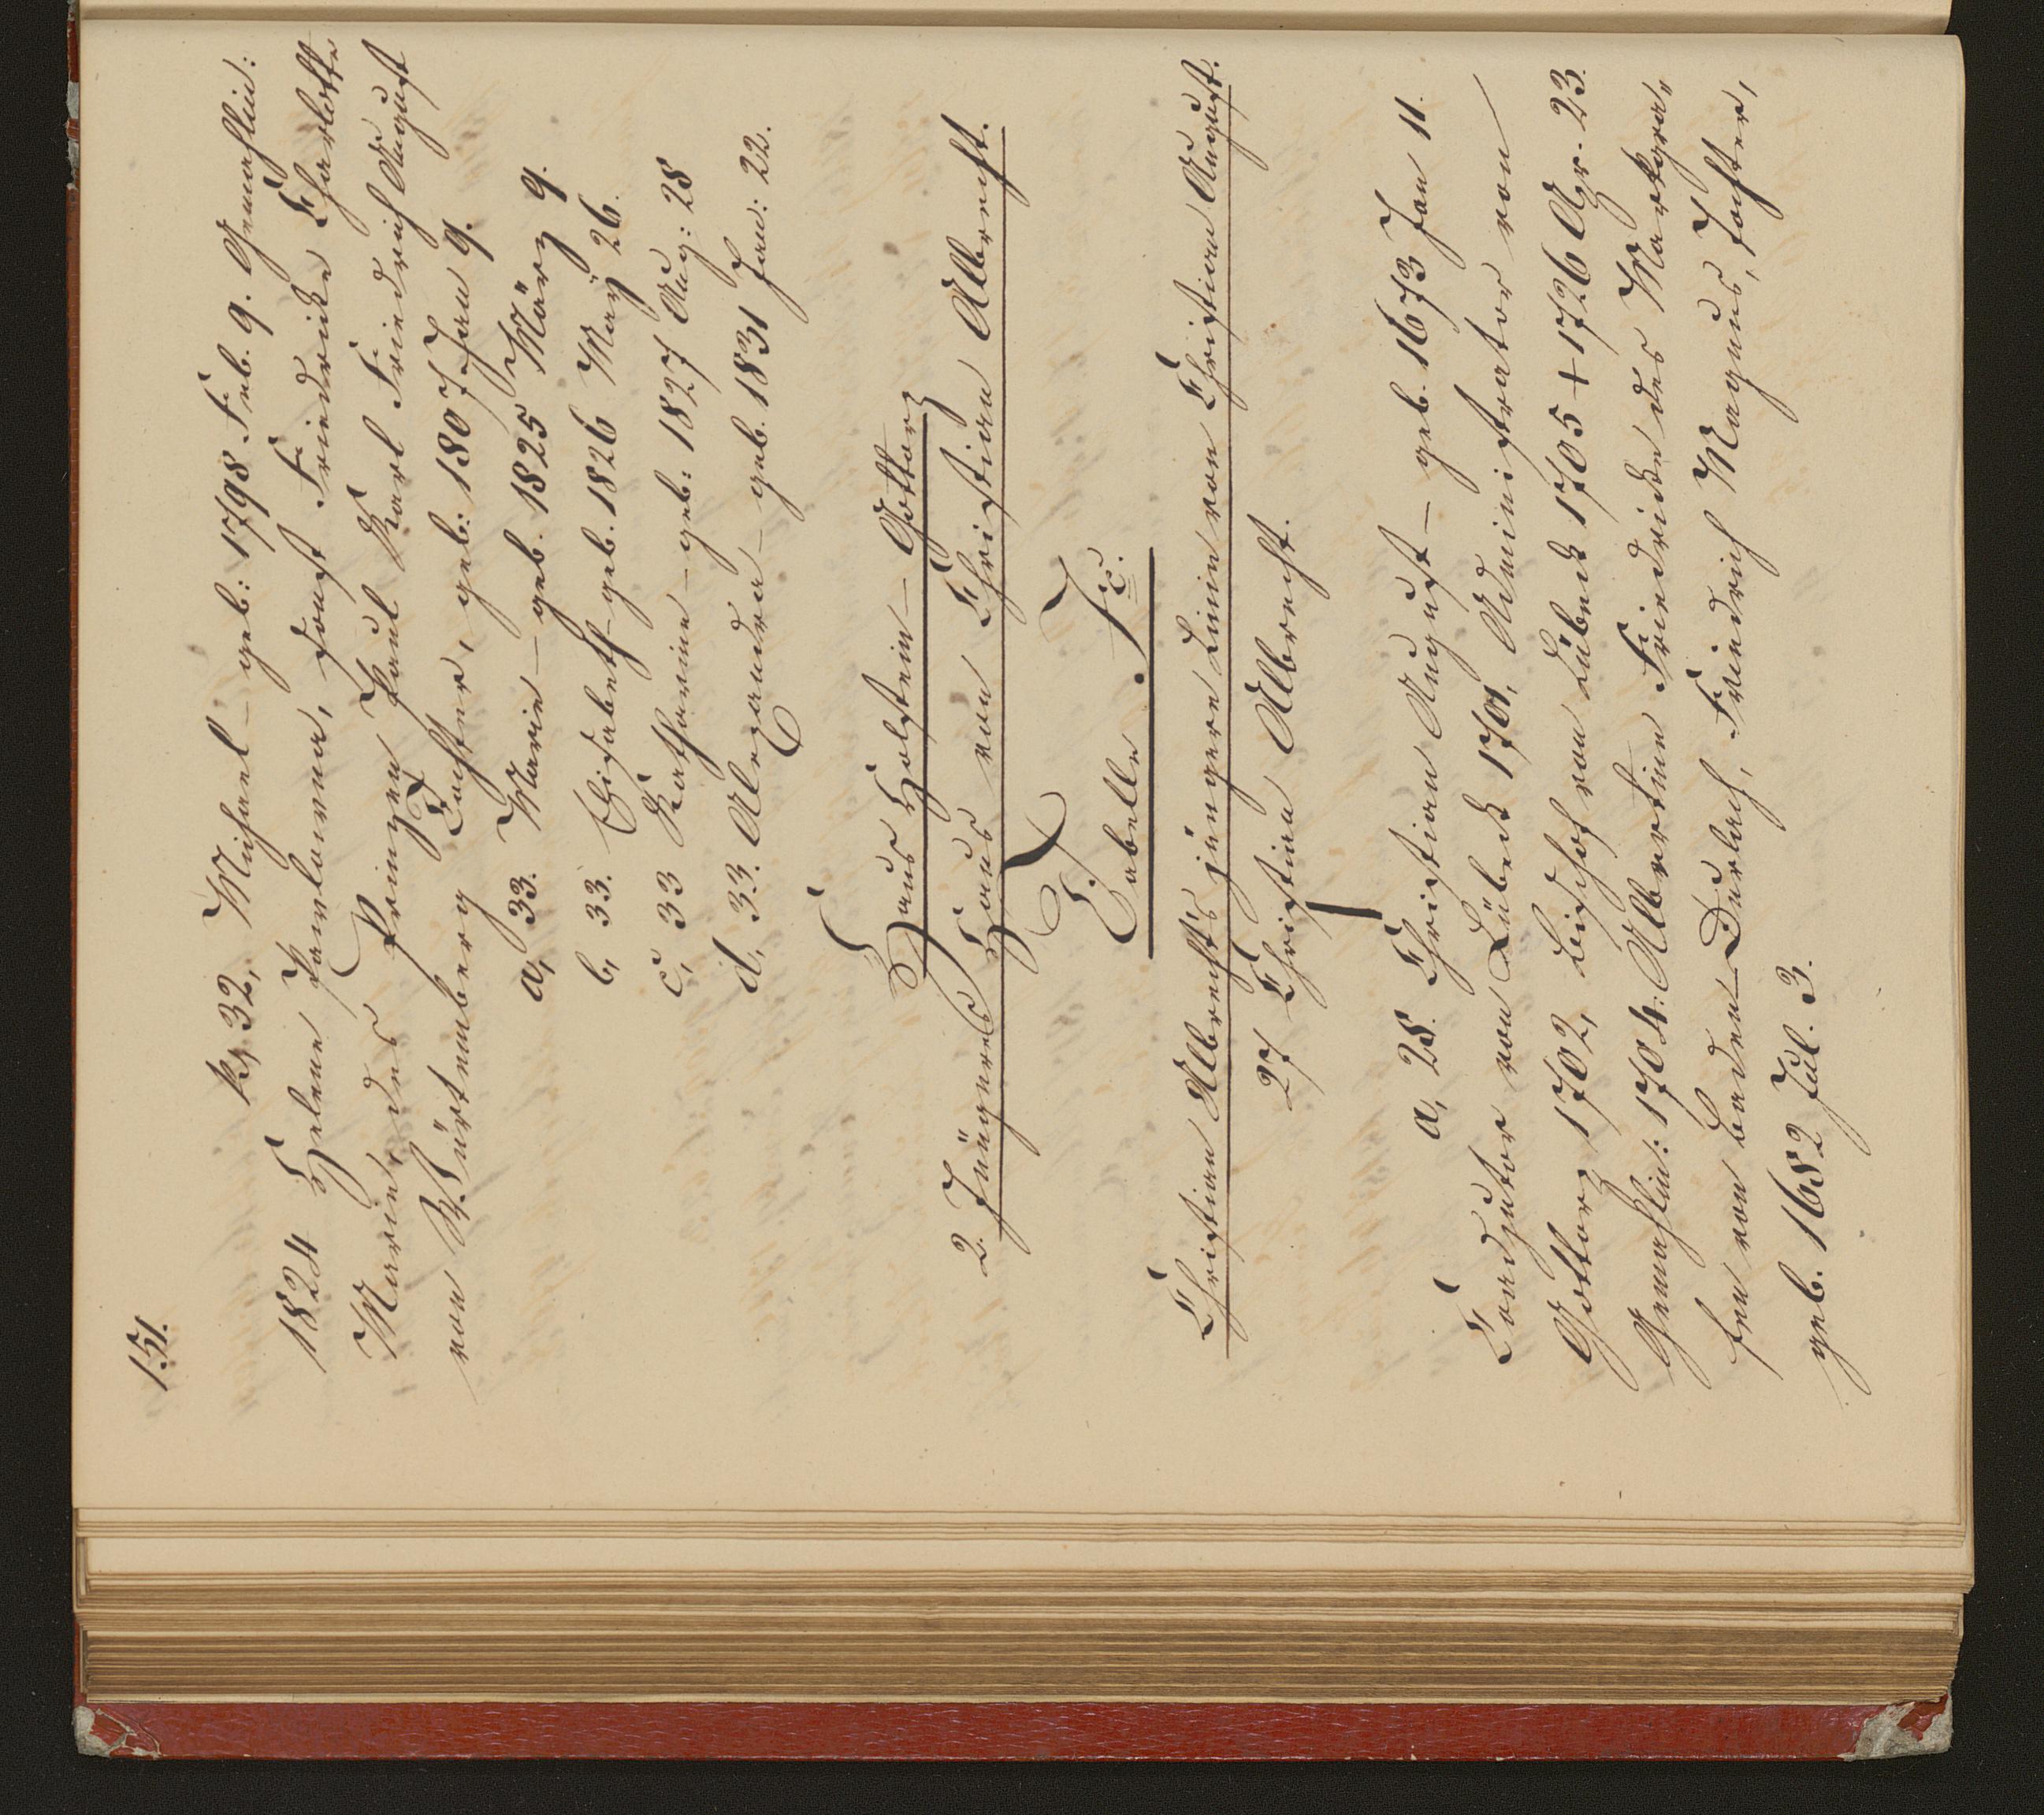 151.
k, 32, Michael – geb: 1798 Feb. 9. Gemahlin:
1824 Helene Pawlowna, sonst Friedricke Charlotte
Marie, des Prinzen Paul Karl Friedrich August
von Würtemberg Tochter, geb: 1807 Jan 9.
a, 33. Marie – geb. 1825 März 9.
b, 33. Elisabeth – geb. 1826 May 26.
c, 33 Katharine – geb: 1827 Aug: 28
d, 33. Alexandra – geb. 1831 Jan: 22.
Haus Holstein – Gottorz
2. Jüngeres Haus von Christian Albrecht.
Tabelle. I c.
Christian Albrecht's jüngere Linie von Christian August.
27 Christian Albrecht.
a, 28. Christian August – geb. 1673 Jan 11.
Coadjutor von Lübeck 1701, Administrator von
Gottorz 1702, Bischof von Lübeck 1705 + 1726 Apr. 23.
Gemahlin: 1704: Albertine Friedricke des Markgra„
fen von Baden – Durlach, Friedrich Magnus, Tochter,
geb. 1682 Jul. 3.